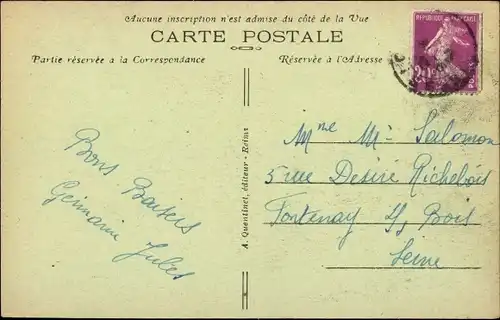 Aucune inscription n'est admise du côté de la Vue
CARTE POSTALE
Partie réservée à la Correspondance
Réservée à l'Adresse
REPUBLIQUE FRANÇAISE
POSTES
Bons Baisers
Germaine Jules
A. Quentinet, éditeur - Reims
Mme Mr Salomon
5 rue Desire Richebois
Fontenay s/s Bois
Seine